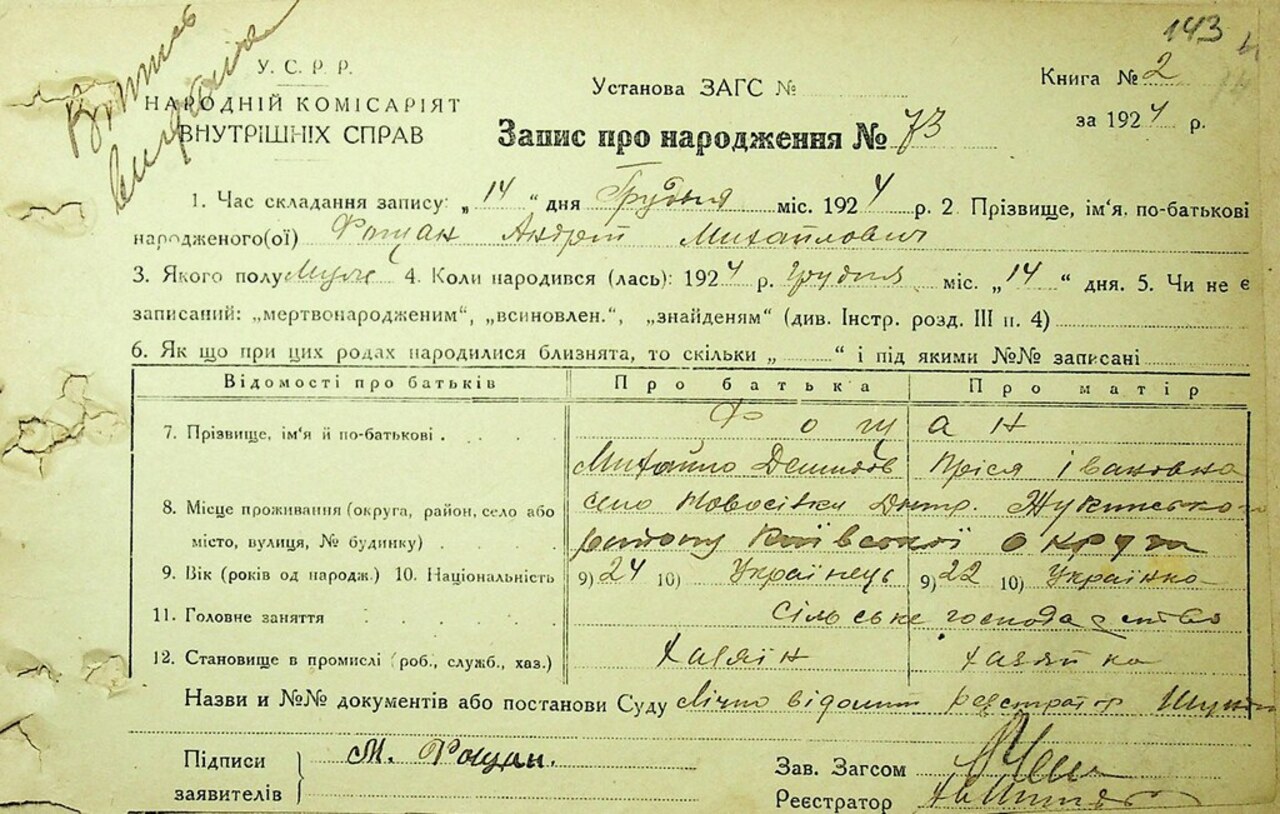 143
Витяг
У. С. Р. Р.
НАРОДНІЙ КОМІСАРІЯТ
ВНУТРІШНІХ СПРАВ
Установа ЗАГС №
Книга № 2
за 1924 р.
Запис про народження № 73
1. Час складання запису: „14“ дня Грудня міс. 1924 р. 2. Прізвище, ім'я, по-батькові
народженого(ої) Фощан Андрій Михайлович
3. Якого полу Муж 4. Коли народився (лась): 1924 р. грудня міс. „14“ дня. 5. Чи не є
записаний: „мертвонародженим“, „всиновлен.“, „знайденям“ (див. Інстр. розд. III п. 4)
6. Як що при цих родах народилися близнята, то скільки „ “ і під якими №№ записані
Відомості про батьків Про батька Про матір
7. Прізвище, ім'я й по-батькові Фощан
Михайло Демидов Пріся Івановна
8. Місце проживання (округа, район, село або село Новосівки Днтр. Жукинсько
місто, вулиця, № будинку) району Київської округи
9. Вік (років од народж.) 10. Національність 9) 24 10) Українець 9) 22 10) Українка
11. Головне заняття Сільське господарство
12. Становище в промислі (роб., служб., хаз.) Хазяїн хазяйка
Назви и №№ документів або постанови Суду Лічно відомий реєстратор
Підписи
заявителів
М. Фощан.
Зав. Загсом
Реєстратор